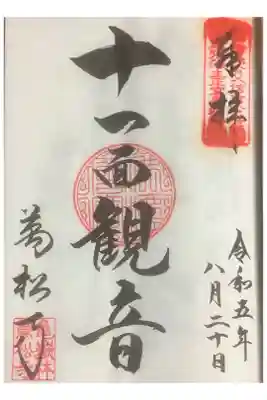 奉拝
令和五年
八月二十日
十一面観音
萬松寺